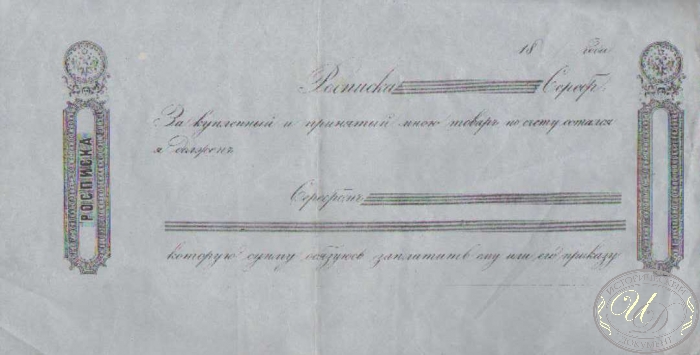 18 года
Росписка Серебр.
За купленный и принятый мною товаръ по счету остался
я долженъ
Серебромъ
которую сумму обязуюсь заплатить ему или его приказу
РОСПИСКА